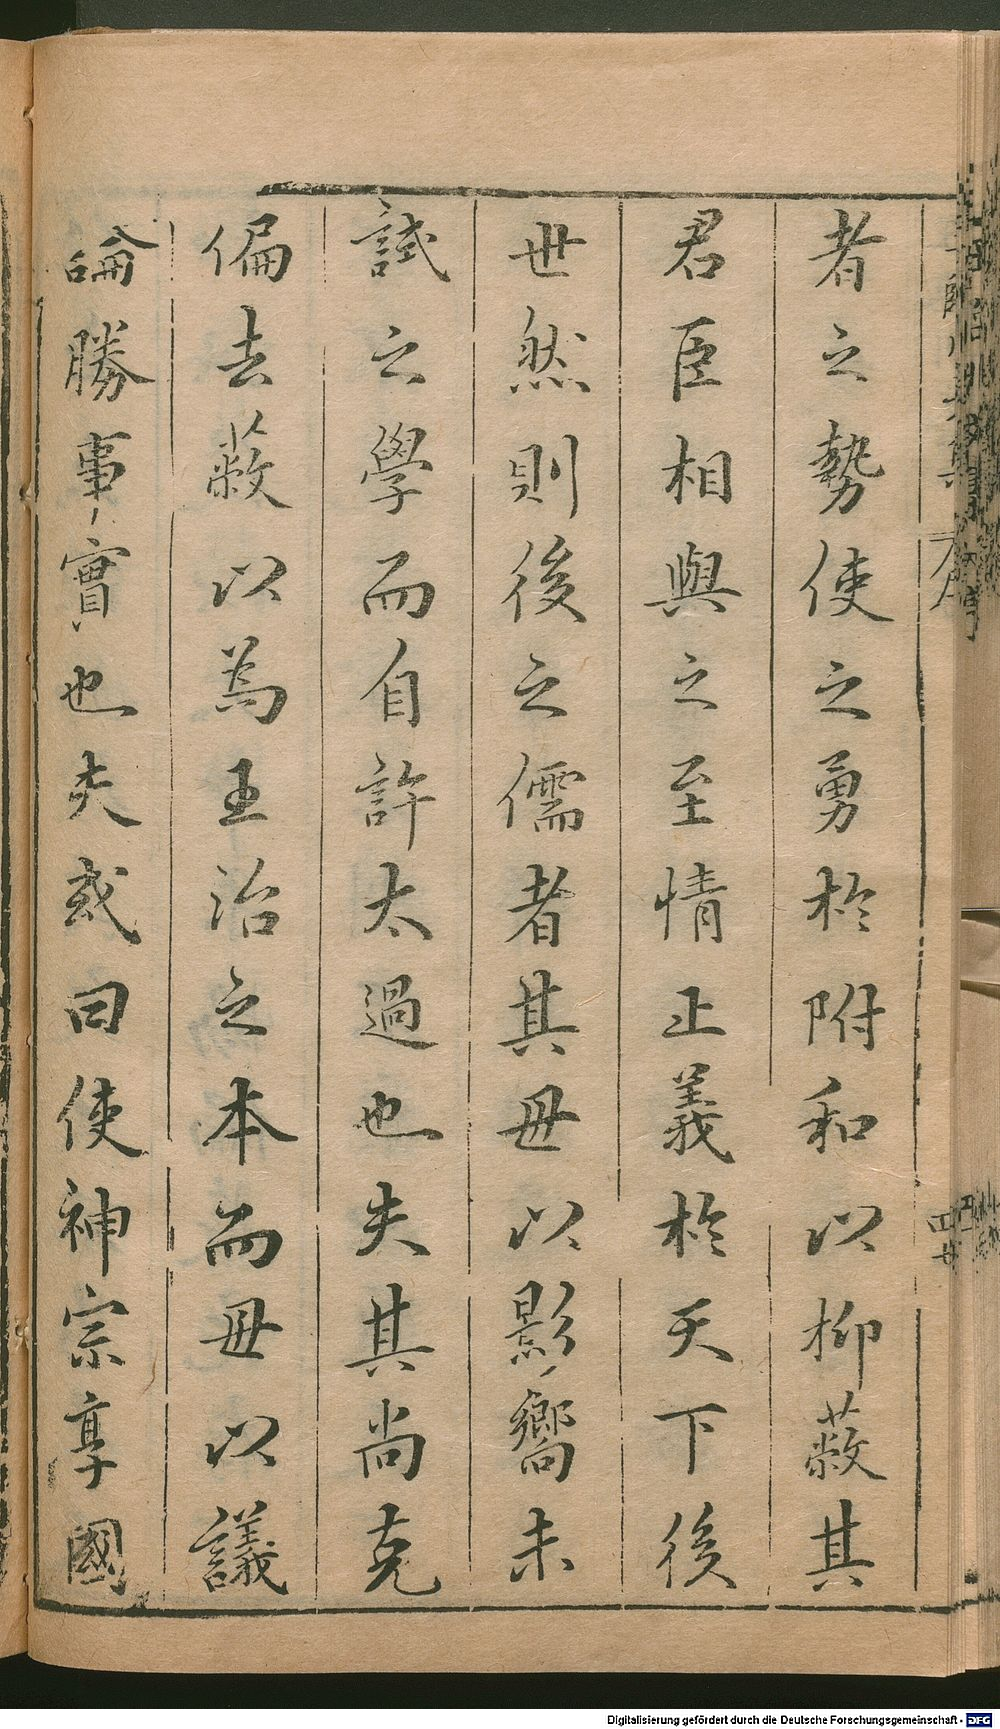 者之勢使之勇於附和以抑蔽其
君臣相與之至情正義於天下後
世然則後之儒者其毋以影嚮未
試之學而自許太過也失其尚克
偏去蔽以為王治之本而毋以議
論勝事實也夫或曰使神宗享國
Digitalisierung gefördert durch die Deutsche Forschungsgemeinschaft - DFG